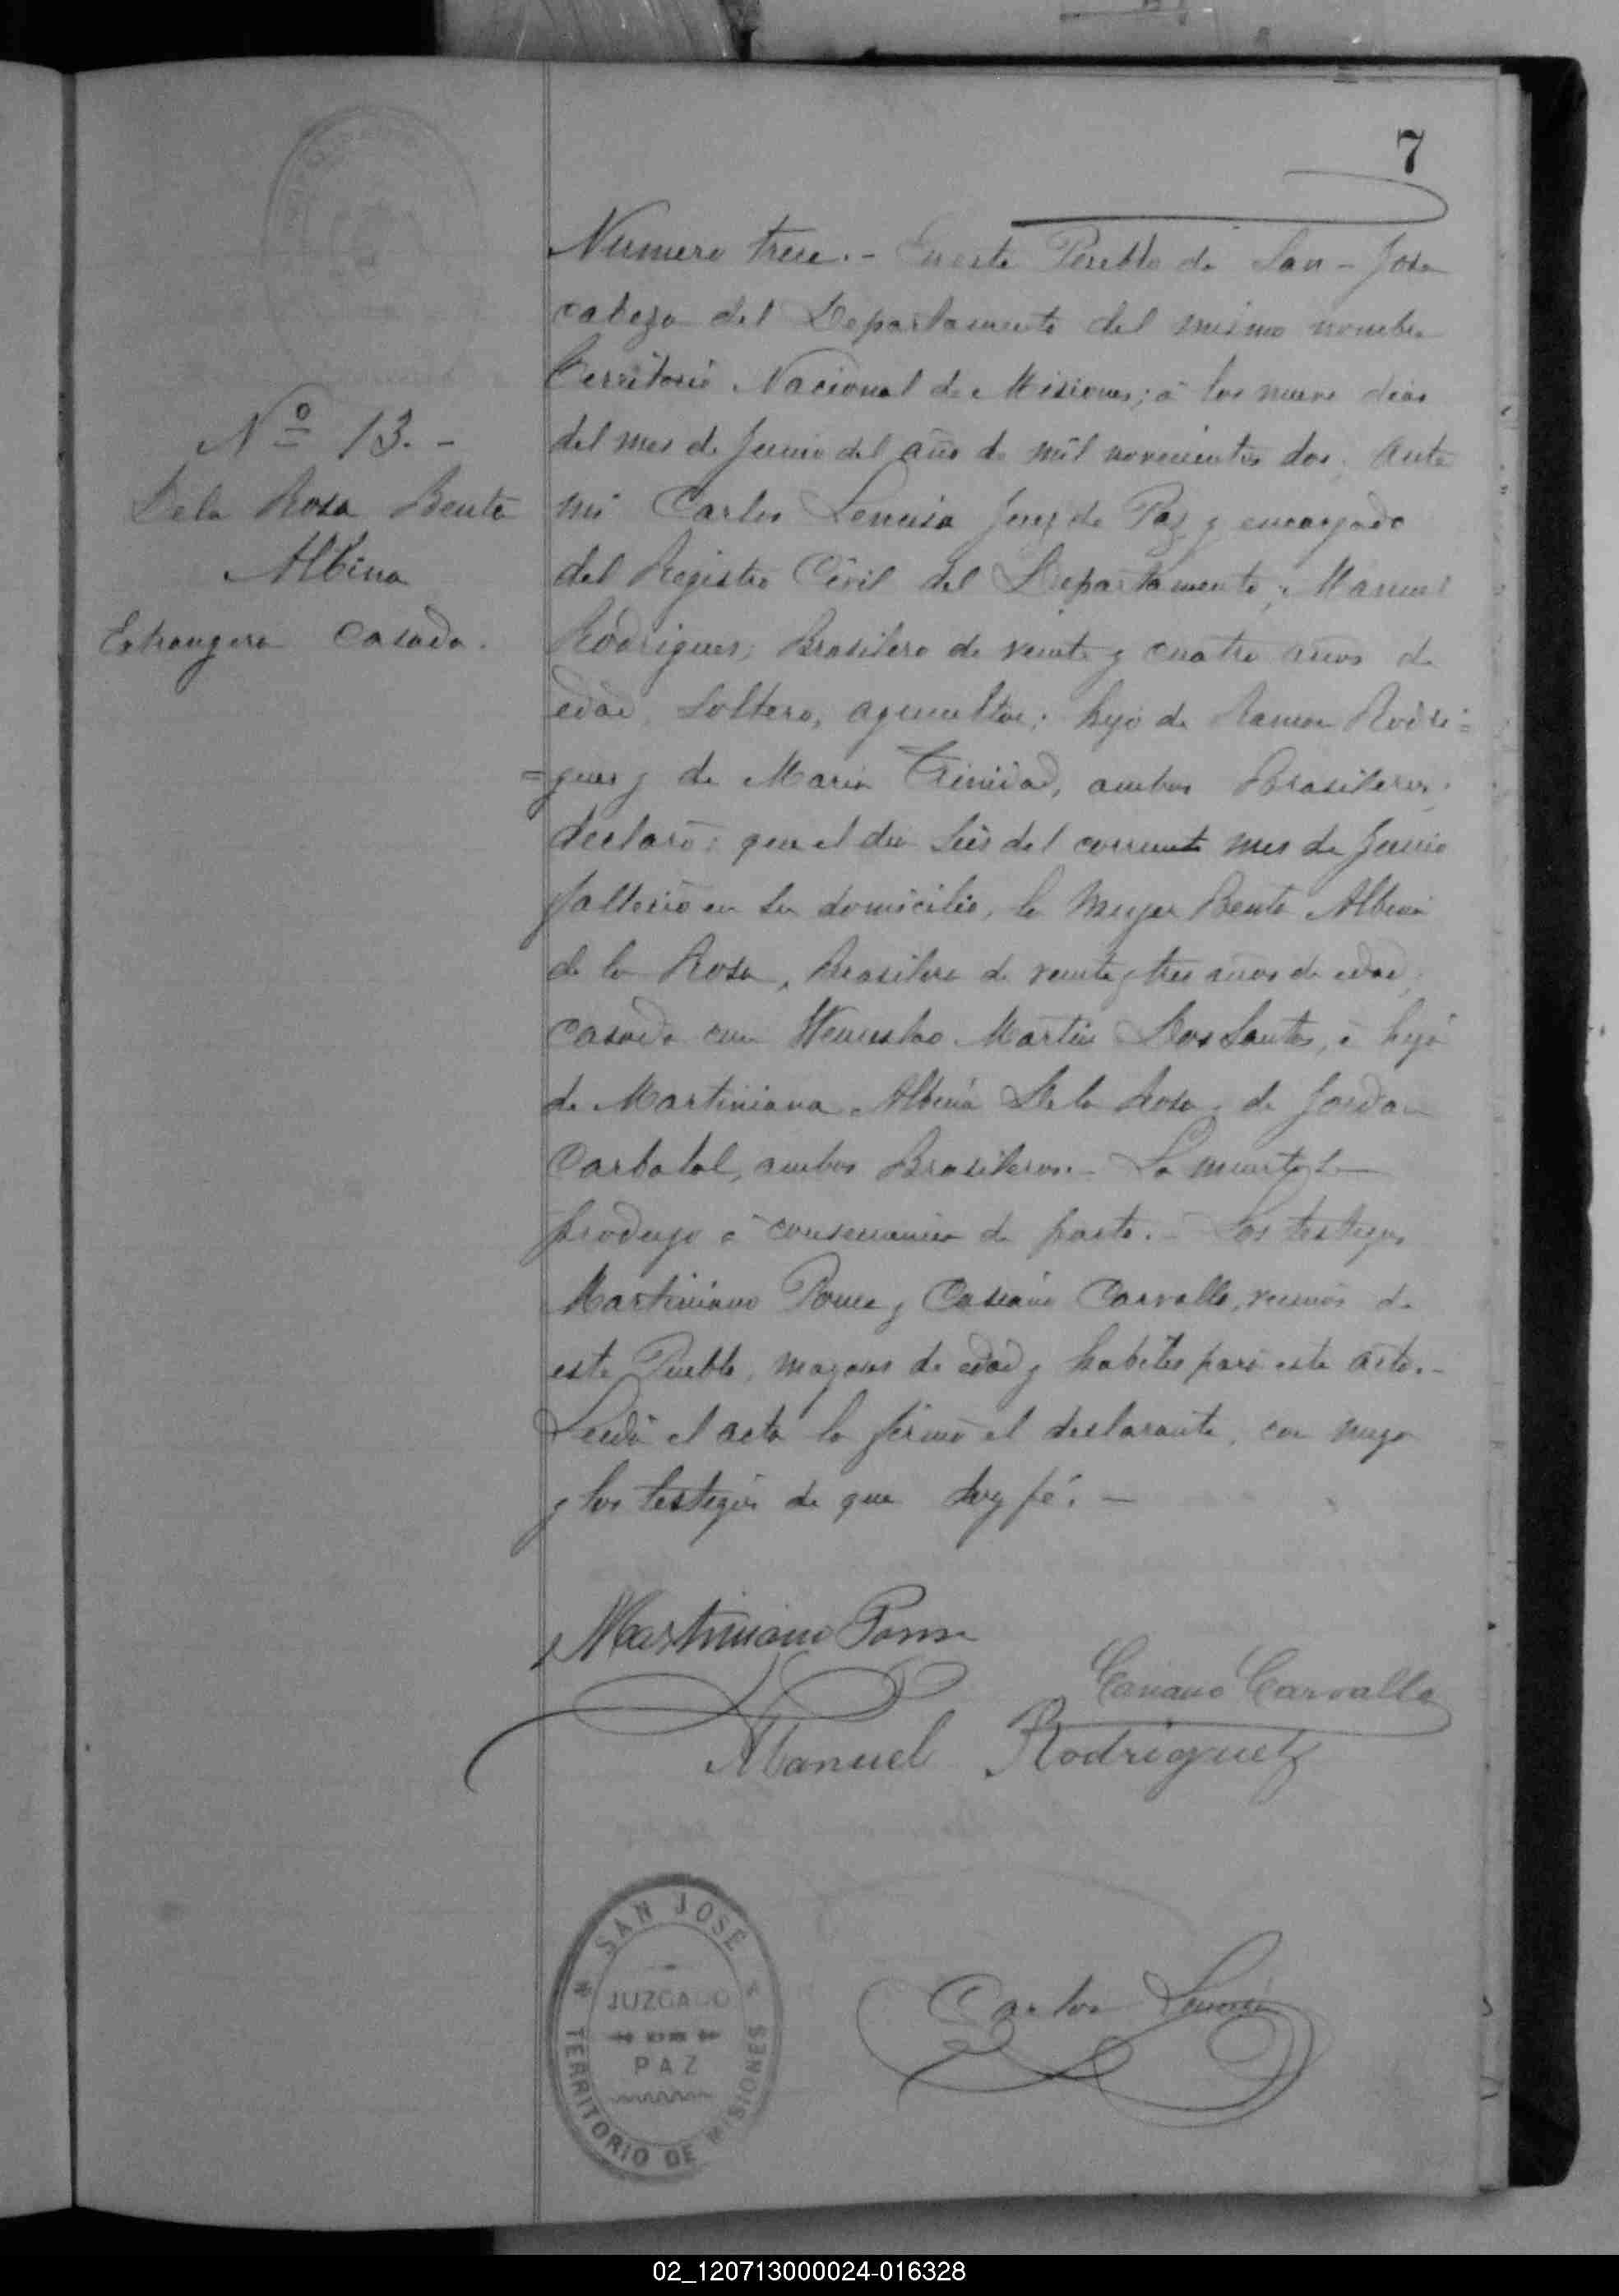 7
Numero trece.- En este Pueblo de San-Jose
cabeza del Departamento del mismo nombre
Territorio Nacional de Misiones; á los nueve dias
del mes de Junio del año de mil novecientos dos, ante
Nº 13.-
De la Rosa Benta
Albina
Estrangera Casada.
mi Carlos Juez de Paz y encargado
del Registro Civil del Departamento; Manuel
Rodrigues, Brasilero de veinte y cuatro años de
edad, Soltero, agricultor; hijo de Ramon Rodri=
=gues y de Maria Trinidad, ambos Brasileros;
declaró: que el dia Seis del corriente mes de Junio
fallecio en su domicilio, la muger Benta Albina
de la Rosa, Brasilera de veinte y tres años de edad,
casada con Martin Dos Santos, é hija
de Martiniana Albina De la Rosa y de
ambos Brasileros.- La muerte se
produjo á consecuencia de parto.- Los testigos
Martiniano Ponce y Casiano Carvallo, vecinos de
este Pueblo, mayores de edad y habiles para este acto.-
Leida el acta la firmó el declarante, con migo
y los testigos de que doy fé.-
Martiniano Ponce
Casiano Carvallo
Manuel Rodriguez
SAN JOSÉ
JUZGADO
DE
PAZ
TERRITORIO DE MISIONES
Carlos
02_120713000024-016328